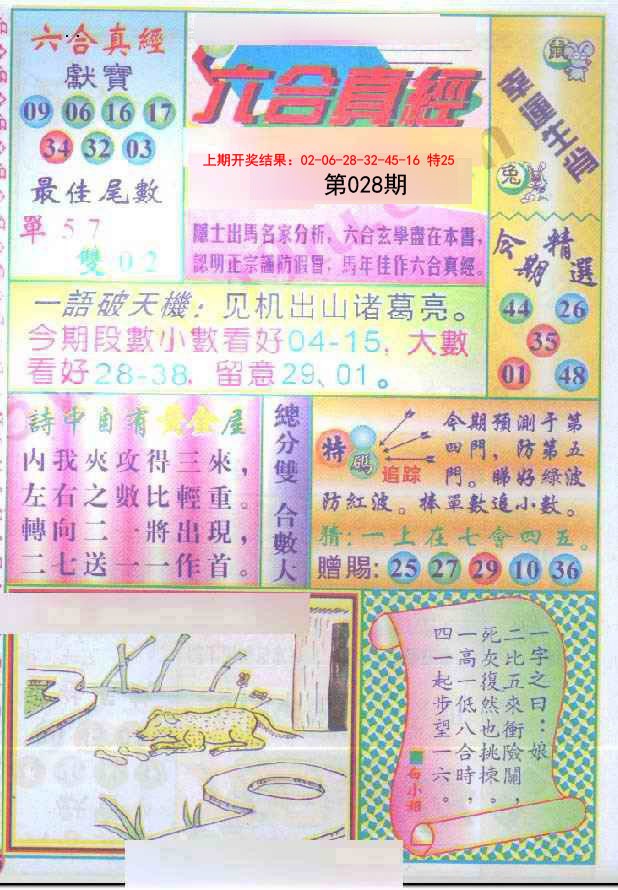 六合真經
獻寶
09 06 16 17
34 32 03
最佳尾數
單 5 7
雙 0 2
六合真經
上期开奖结果：02-06-28-32-45-16 特25
第028期
隱士出馬名家分析，六合玄學盡在本書，
認明正宗謹防假冒，馬年佳作六合真經。
鼠
幸運生肖
兔
今期精選
44 26
35
01 48
一語破天機：见机出山诸葛亮。
今期段數小數看好04-15，大數
看好28-38，留意29、01。
詩中自有黄金屋
内我夾攻得三來，
左右之數比輕重。
轉向二一將出現，
二七送一一作首。
總分雙 合數大
特码
追踪
今期預測于第
四門，防第五
門。睇好綠波
防紅波。捧單數追小數。
猜：一上在七會四五。
贈賜：25 27 29 10 36
一字之曰：娘
二比五來衝險關，
死灰復然也挑揀。
一高一低八合時，
四一起步望一六。